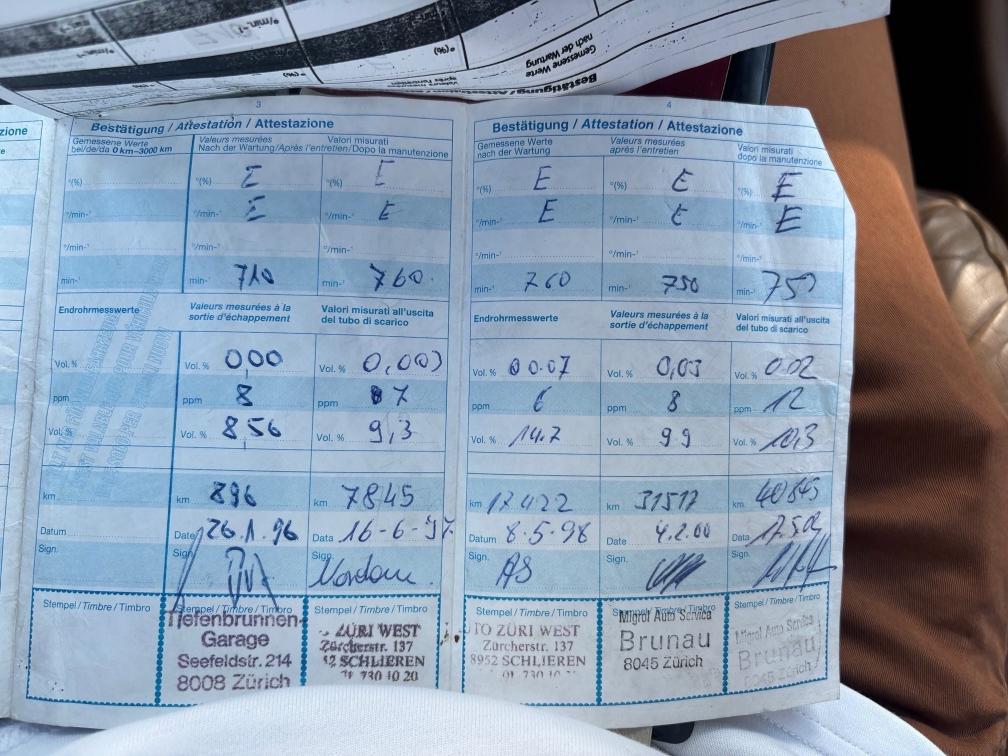 °/min.-¹
°/min-¹
°(%)
Gemessene Werte
nach der Wartung
Valeurs mesurées
après l'entretien
Bestätigung / Attestation / Attestazione
zione
3
Bestätigung / Attestation / Attestazione
Gemessene Werte
bei/de/da 0 km–3000 km
Valeurs mesurées
Nach der Wartung/Après l'entretien/Dopo la manutenzione
Valori misurati
°(%) E E
°/min-¹ E °/min-¹ E
°/min-¹ °/min-¹
min-¹ min-¹ 710 min-¹ 760
Endrohrmesswerte
Valeurs mesurées à la
sortie d'échappement
Valori misurati all'uscita
del tubo di scarico
Vol. % Vol. % 0,00 Vol. % 0,003
ppm ppm 8 ppm 7
Vol. % Vol. % 8,56 Vol. % 9,3
km km 896 km 7845
Datum Date 26.1.96 Data 16-6-97
Sign. Sign. Sign.
Stempel / Timbre / Timbro
Stempel / Timbre / Timbro
Tiefenbrunnen-
Garage
Seefeldstr. 214
8008 Zürich
Stempel / Timbre / Timbro
ZÜRI WEST
Zürcherstr. 137
52 SCHLIEREN
730 10 20
4
Bestätigung / Attestation / Attestazione
Gemessene Werte
nach der Wartung
Valeurs mesurées
après l'entretien
Valori misurati
dopo la manutenzione
°(%) E °(%) E °(%) E
°/min-¹ E °/min-¹ E °/min-¹ E
°/min-¹ °/min-¹ °/min-¹
min-¹ 760 min-¹ 750 min-¹ 750
Endrohrmesswerte
Valeurs mesurées à la
sortie d'échappement
Valori misurati all'uscita
del tubo di scarico
Vol. % 0.07 Vol. % 0,03 Vol. % 0.02
ppm 6 ppm 8 ppm 12
Vol. % 14.7 Vol. % 9.9 Vol. % 10,3
km 17422 km 31517 km
Datum 8.5.98 Date 4.2.00 Data 17.5.02
Sign. AS Sign. Sign.
Stempel / Timbre / Timbro
TO ZÜRI WEST
Zürcherstr. 137
8952 SCHLIEREN
01 730 10
Stempel / Timbre / Timbro
Migrol Auto Service
Brunau
8045 Zürich
Stempel / Timbre / Timbro
Migrol Auto Service
Brunau
8045 Zürich